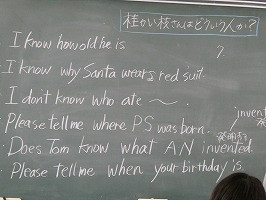 さんはどういう人か?
?
I know how old he is.
I know why Santa wears red suit.
I don't know who ate ～.
invent
Please tell me where PS was born.
発明する
Does Tom know what AN invented.
Please tell me when your birthday is.